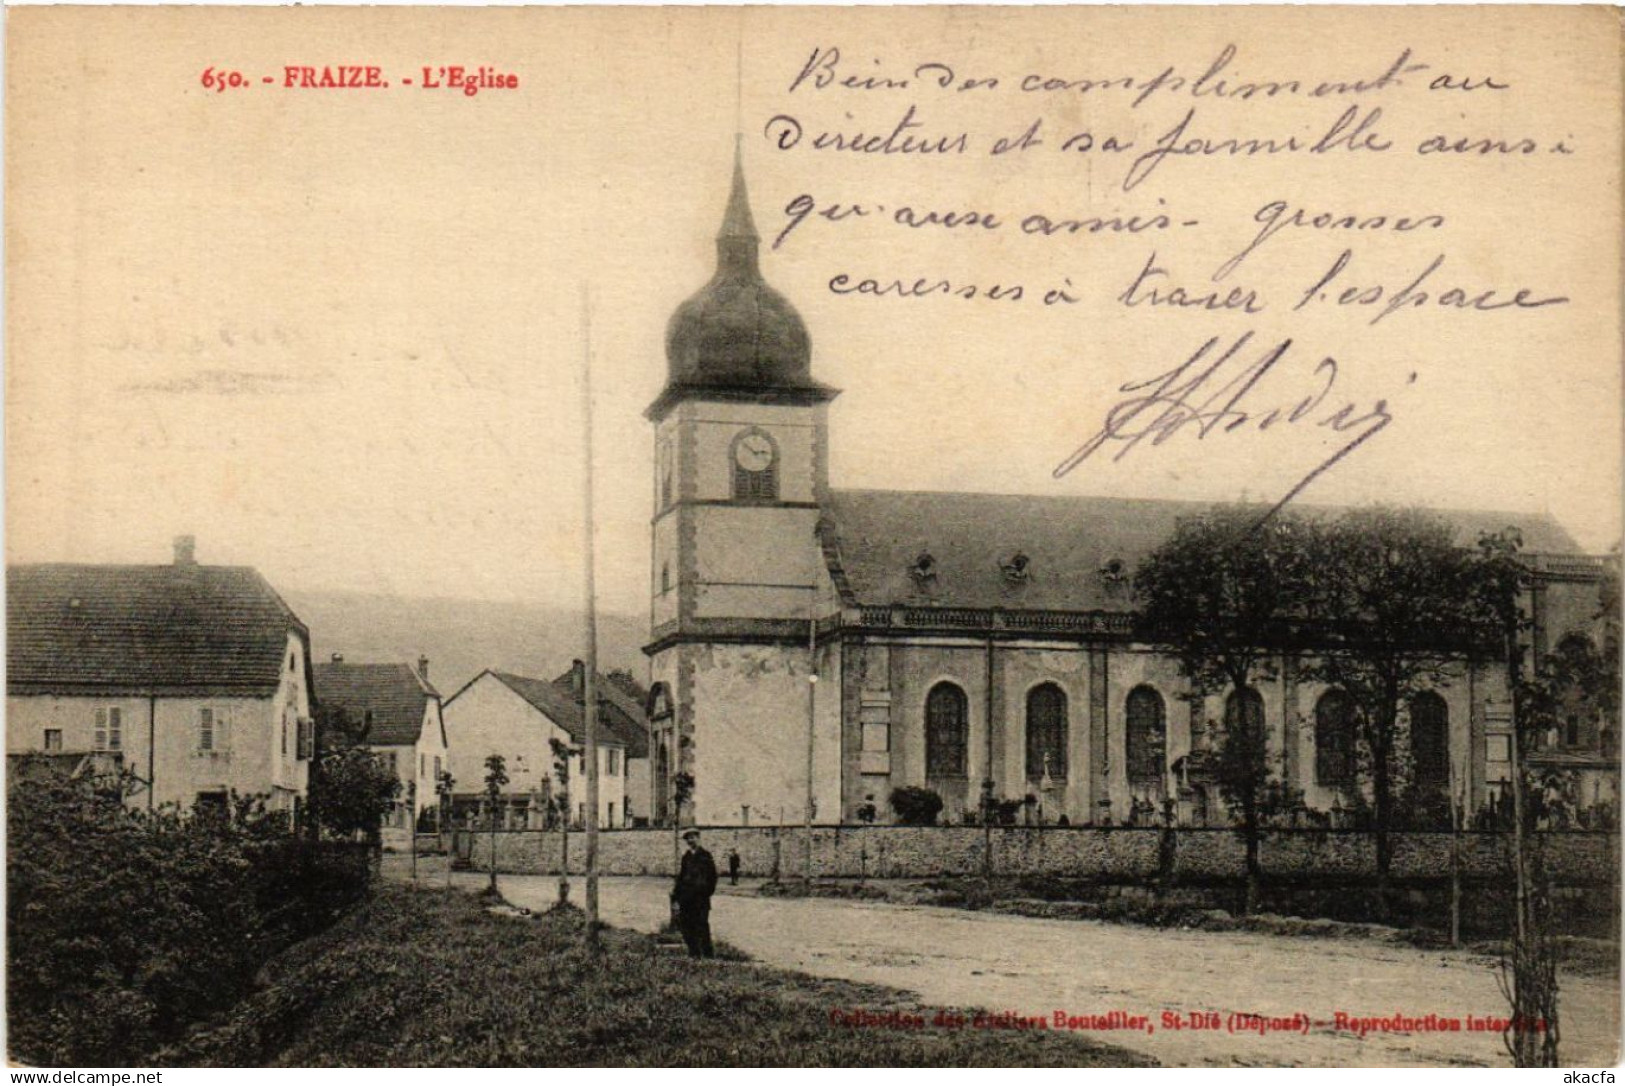 650. - FRAIZE. - L'Eglise
Bein des compliment au
Directeur et sa famille ainsi
qu'avese amis - grosses
caresses à traver l'espace
Collection des Ateliers Bouteiller, St-Dié (Déposé) - Reproduction interdite
www.delcampe.net
akacfa